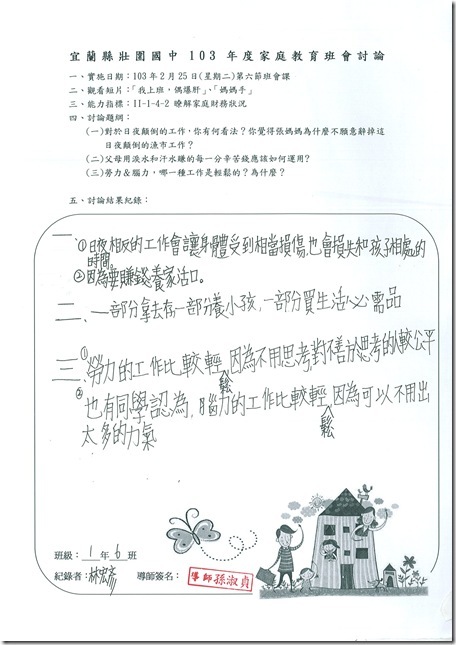 宜蘭縣壯圍國中 103 年度家庭教育班會討論
一、實施日期：103 年 2 月 25 日(星期二)第六節班會課
二、觀看短片：「我上班，偶爆肝」、「媽媽手」
三、能力指標：II-1-4-2 瞭解家庭財務狀況
四、討論題綱：
(一)對於日夜顛倒的工作，你有何看法？你覺得張媽媽為什麼不願意辭掉這
日夜顛倒的漁市工作？
(二)父母用淚水和汗水賺的每一分辛苦錢應該如何運用？
(三)勞力&腦力，哪一種工作是輕鬆的？為什麼？
五、討論結果紀錄：
一、①日夜相反的工作會讓身體受到相當損傷,也會損失和孩子相處的
時間。
②因為要賺錢養家活口。
二、一部分拿去存,一部分養小孩,一部分買生活必需品
三、①勞力的工作比較輕鬆,因為不用思考,對不善於思考的人較公平
②也有同學認為,腦力的工作比較輕鬆,因為可以不用出
太多的力氣
班級：1 年 6 班
紀錄者：林宏彥 導師簽名：導師孫淑貞